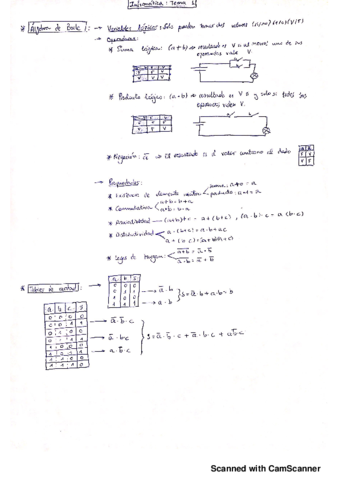 Informática: Tema 1
* Álgebra de Boole: → Variables lógicas: Sólo pueden tomar dos valores
→ Operaciones:
* Suma lógica: (a+b) → resultado es V si al menos uno de sus
operandos vale V.
* Producto lógico: (a·b) → resultado es V si y solo si todos sus
operandos valen V.
* Negación: ā → El resultado es el valor contrario al dado
→ Propiedades:
* Existencia de elemento neutro suma: a+0=a
producto: a·1=a
* Conmutativa a+b=b+a
a·b=b·a
* Asociatividad → (a+b)+c = a+(b+c), (a·b)·c = a·(b·c)
* Distributividad a·(b+c)=a·b+a·c
* Leyes de Morgan:
* Tablas de verdad: →
a b S
0 0 0
0 1 1 → ā·b
1 0 0
1 1 1 → a·b
S=ā·b+a·b=b
a b c S
0 0 0 0
0 0 1 1 → ā·b̄·c
0 1 0 0
0 1 1 1 → ā·b·c
1 0 0 0
1 0 1 1 → a·b̄·c
1 1 0 0
1 1 1 0
S=ā·b̄·c + ā·b·c + a·b̄·c
Scanned with CamScanner